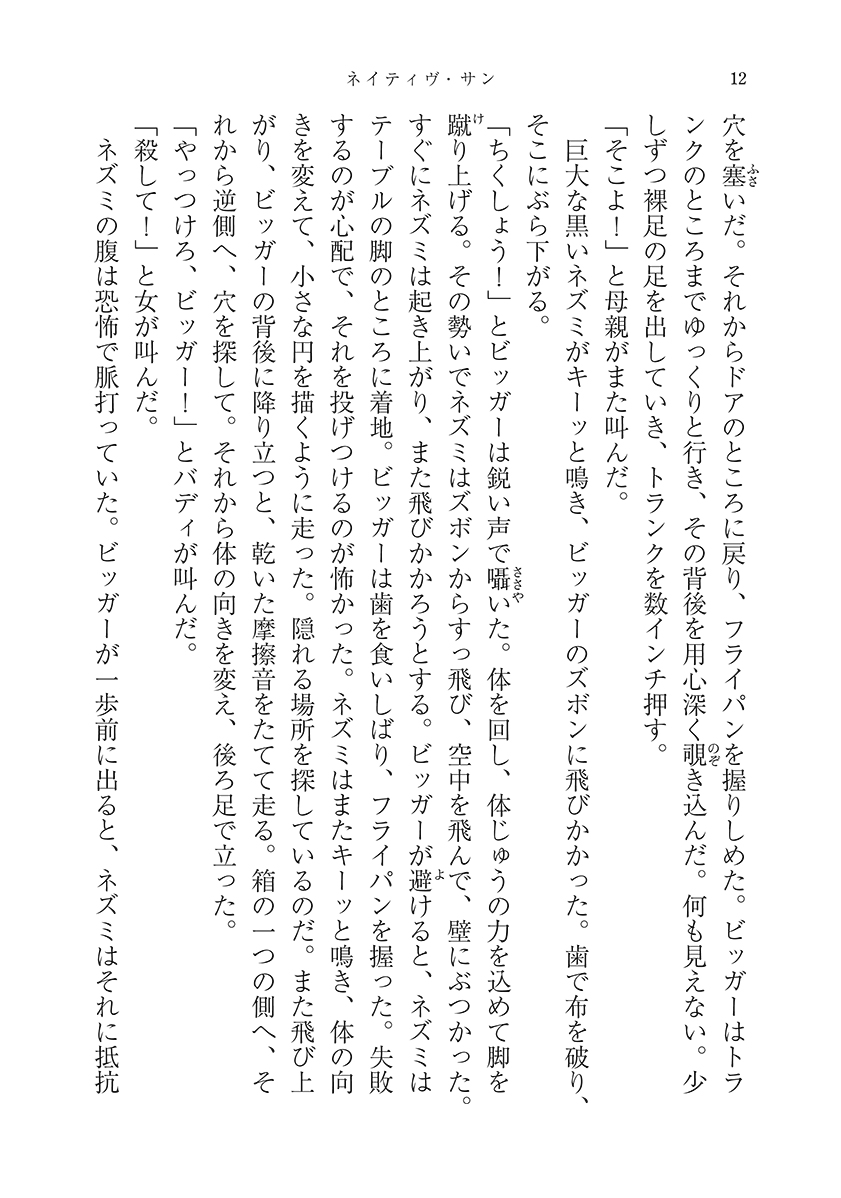 ネイティヴ・サン
12
穴を塞いだ。それからドアのところに戻り、フライパンを握りしめた。ビッガーはトラ
ふさ
ンクのところまでゆっくりと行き、その背後を用心深く覗き込んだ。何も見えない。少
のぞ
しずつ裸足の足を出していき、トランクを数インチ押す。
「そこよ！」と母親がまた叫んだ。
巨大な黒いネズミがキーッと鳴き、ビッガーのズボンに飛びかかった。歯で布を破り、
そこにぶら下がる。
「ちくしょう！」とビッガーは鋭い声で囁いた。体を回し、体じゅうの力を込めて脚を
ささや
蹴り上げる。その勢いでネズミはズボンからすっ飛び、空中を飛んで、壁にぶつかった。
け
すぐにネズミは起き上がり、また飛びかかろうとする。ビッガーが避けると、ネズミは
よ
テーブルの脚のところに着地。ビッガーは歯を食いしばり、フライパンを握った。失敗
するのが心配で、それを投げつけるのが怖かった。ネズミはまたキーッと鳴き、体の向
きを変えて、小さな円を描くように走った。隠れる場所を探しているのだ。また飛び上
がり、ビッガーの背後に降り立つと、乾いた摩擦音をたてて走る。箱の一つの側へ、そ
れから逆側へ、穴を探して。それから体の向きを変え、後ろ足で立った。
「やっつけろ、ビッガー！」とバディが叫んだ。
「殺して！」と女が叫んだ。
ネズミの腹は恐怖で脈打っていた。ビッガーが一歩前に出ると、ネズミはそれに抵抗